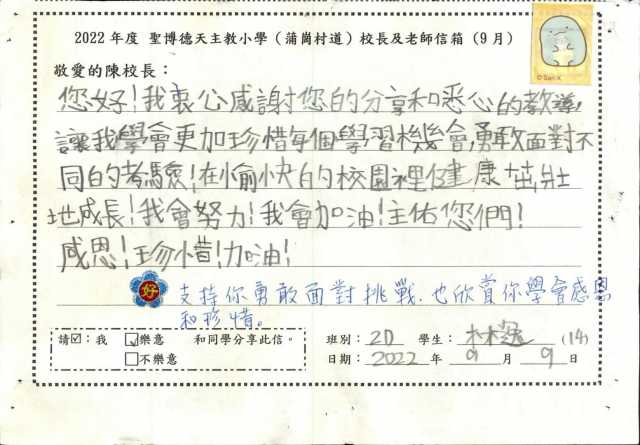 2022 年度 聖博德天主教小學（蒲崗村道）校長及老師信箱（9月）
敬愛的陳校長：
您好！我衷心感謝您的分享和悉心的教導，
讓我學會更加珍惜每個學習機會，勇敢面對不
同的考驗！在愉快的校園裡健康茁壯
地成長！我會努力！我會加油！主佑您們！
感恩！珍惜！加油！
好
支持你勇敢面對挑戰，也欣賞你學會感恩
和珍惜。
請☑：我 ☑樂意 和同學分享此信。
□不樂意
班別：2D 學生：林逸 (14)
日期：2022 年 9 月 9 日